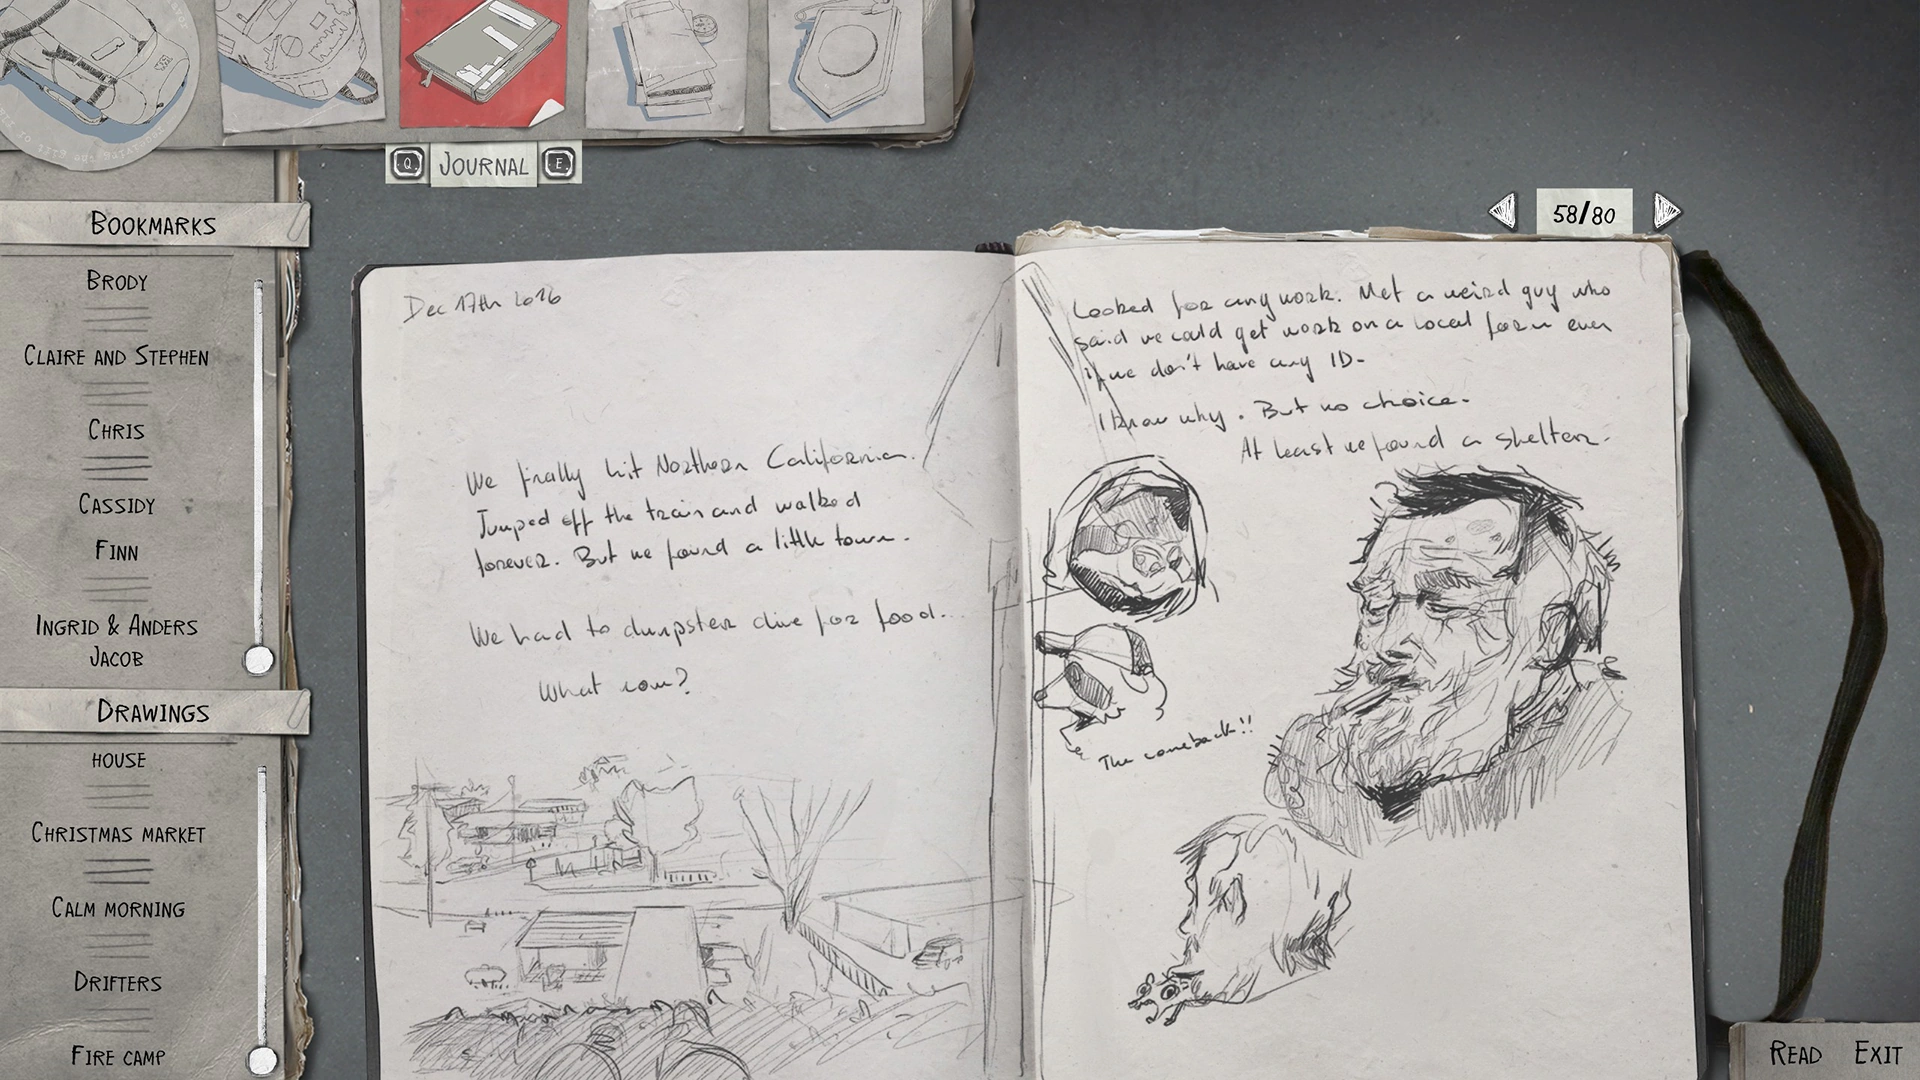 Q JOURNAL E
58/80
BOOKMARKS
BRODY
CLAIRE AND STEPHEN
CHRIS
CASSIDY
FINN
INGRID & ANDERS
JACOB
DRAWINGS
HOUSE
CHRISTMAS MARKET
CALM MORNING
DRIFTERS
FIRE CAMP
Dec 17th 2016
We finally hit Northern California.
Jumped off the train and walked
forever. But we found a little town.
We had to dumpster dive for food...
What now?
Looked for any work. Met a weird guy who
said we could get work on a local farm even
if we don't have any ID.
I know why. But no choice.
At least we found a shelter.
The comeback!!
READ EXIT